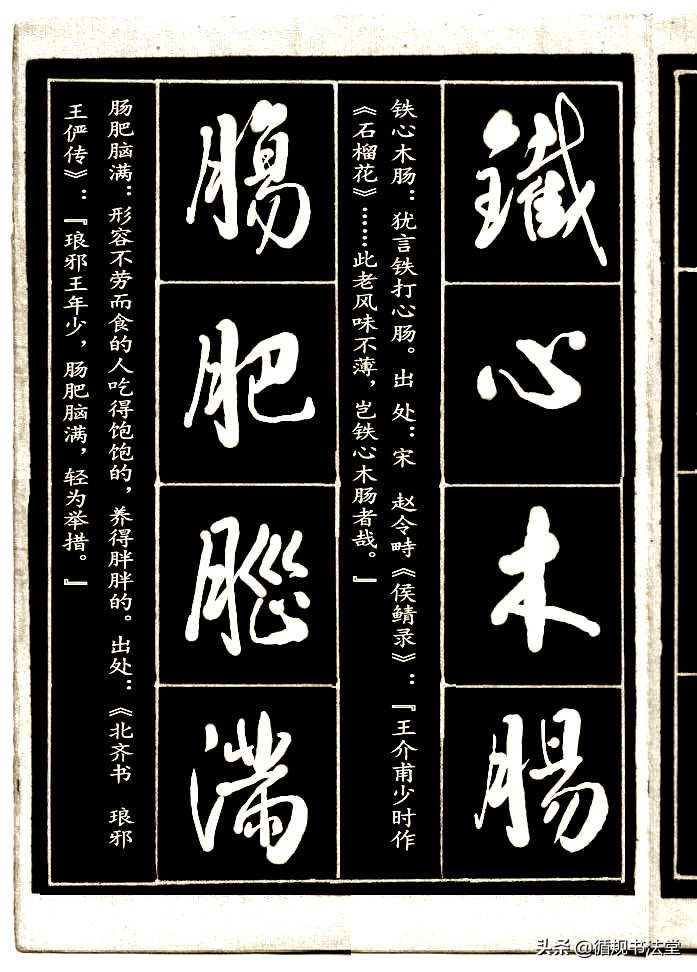 鐵心木腸
铁心木肠：犹言铁打心肠。出处：宋 赵令畤《侯鲭录》：『王介甫少时作
《石榴花》……此老风味不薄，岂铁心木肠者哉。』
腸肥腦滿
肠肥脑满：形容不劳而食的人吃得饱饱的，养得胖胖的。出处：《北齐书 琅邪
王俨传》：『琅邪王年少，肠肥脑满，轻为举措。』
头条 @循规书法堂